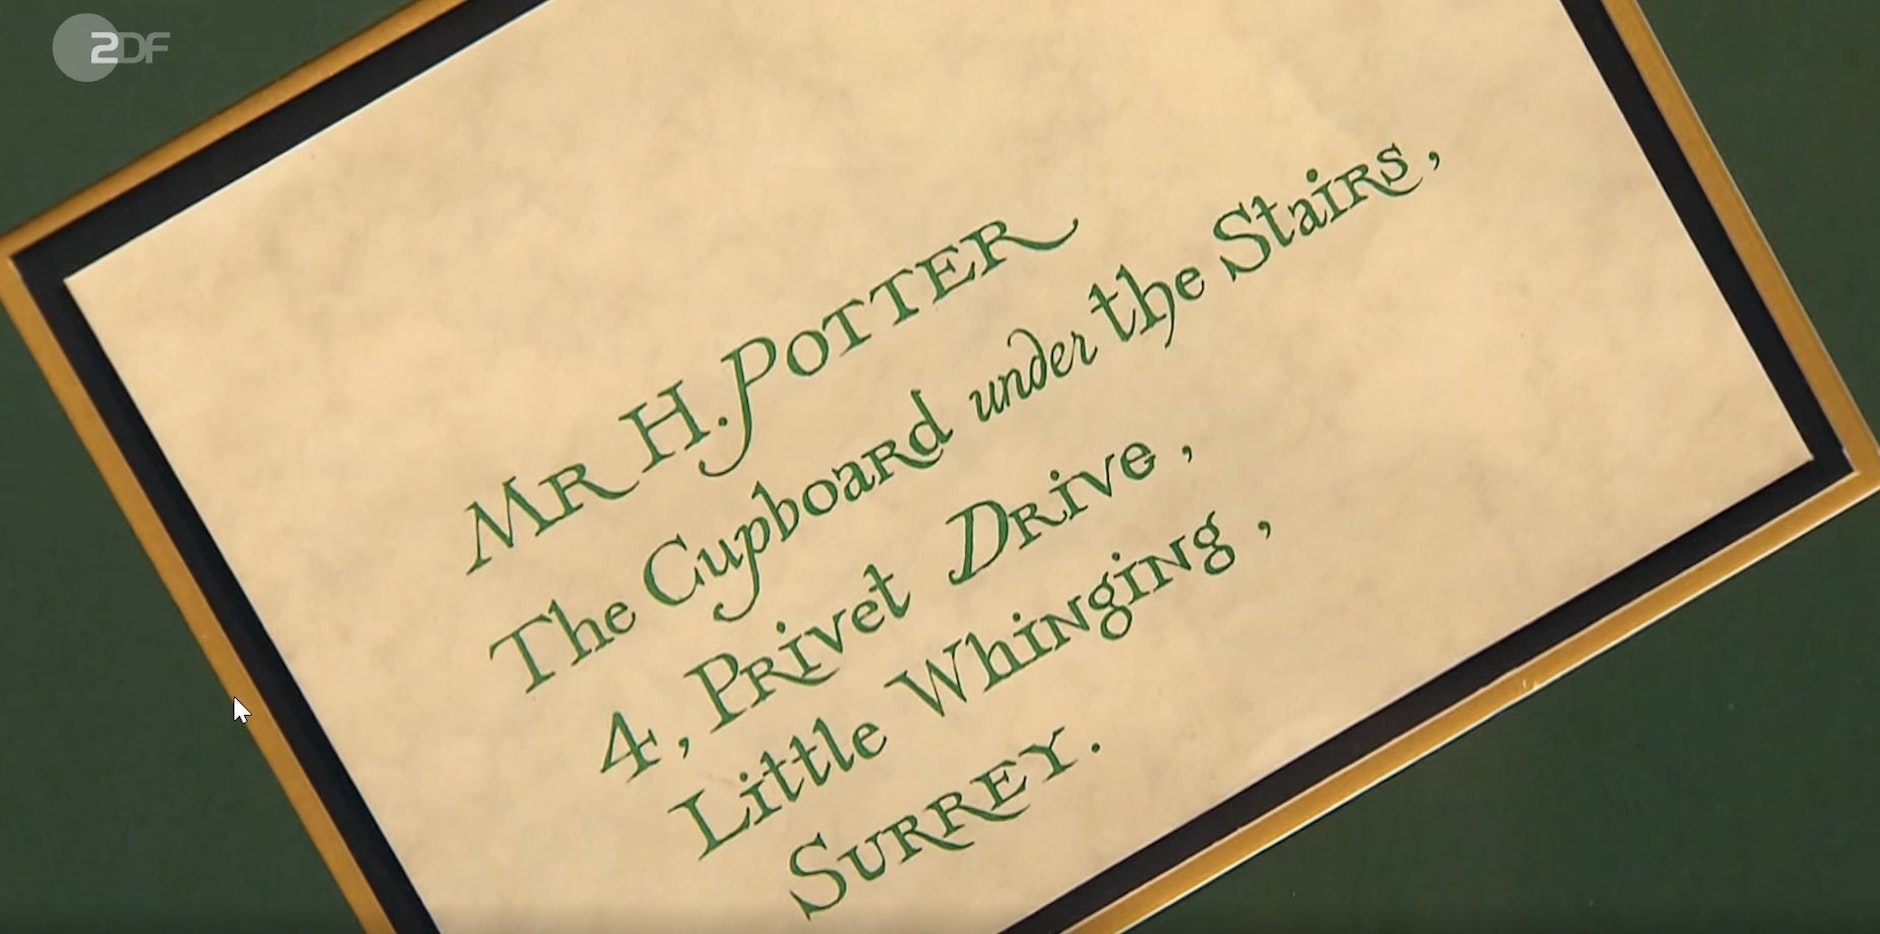 ZDF
Mr H. Potter
The Cupboard under the Stairs,
4, Privet Drive,
Little Whinging,
Surrey.